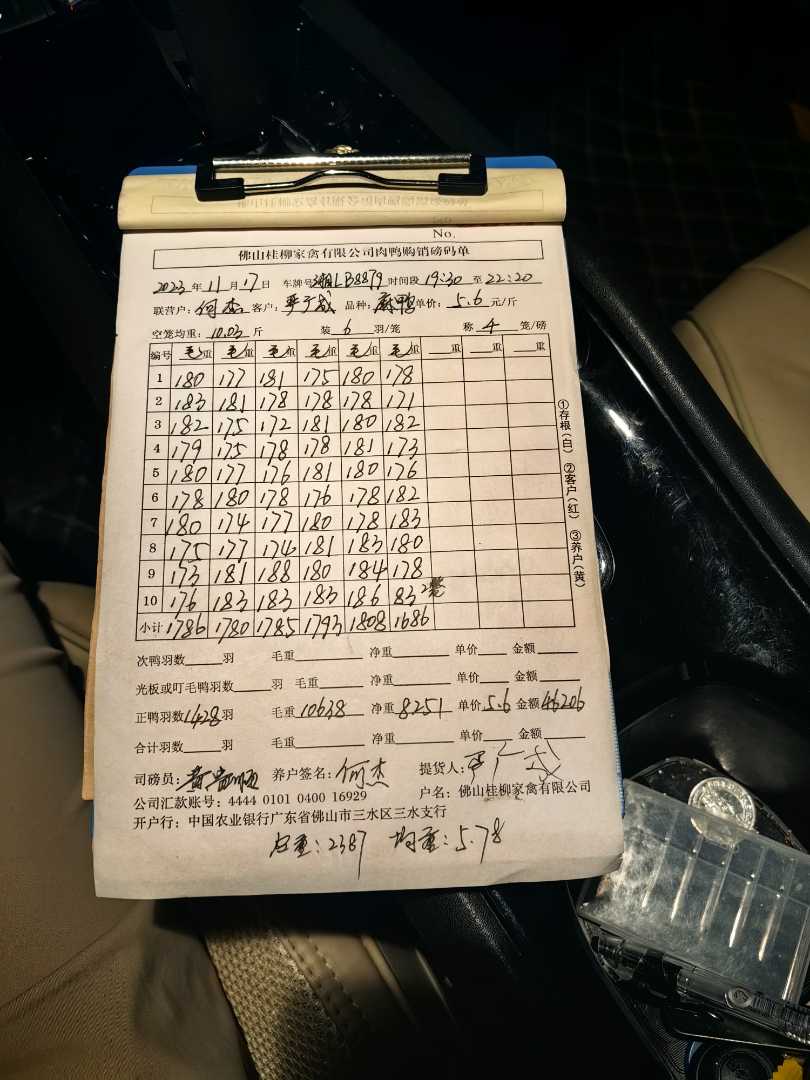 No.
佛山桂柳家禽有限公司肉鸭购销磅码单
2023年11月17日 车牌号湘LB8879时间段19:30至22:20
联营户:何杰 客户: 品种:麻鸭 单价:5.6元/斤
空笼均重:10.03斤 装6羽/笼 称4笼/磅
编号 毛重 毛重 毛重 毛重 毛重 毛重 重 重 重
1 180 177 181 175 180 178
2 183 181 178 178 178 171
3 182 175 172 181 180 182
4 179 175 178 178 181 173
5 180 177 176 181 180 176
6 178 180 178 176 178 182
7 180 174 177 180 178 183
8 175 177 174 181 183 180
9 173 181 188 180 184 178
10 176 183 183 183 186 83 2笼
小计 1786 1780 1785 1793 1808 1686
次鸭羽数 羽 毛重 净重 单价 金额
光板或叮毛鸭羽数 羽 毛重 净重 单价 金额
正鸭羽数1428羽 毛重10638 净重8251 单价5.6 金额46206
合计羽数 羽 毛重 净重 单价 金额
司磅员: 养户签名:何杰 提货人:
公司汇款账号:4444 0101 0400 16929 户名:佛山桂柳家禽有限公司
开户行:中国农业银行广东省佛山市三水区三水支行
皮重:2387 均重:5.78
①存根(白) ②客户(红) ③养户(黄)